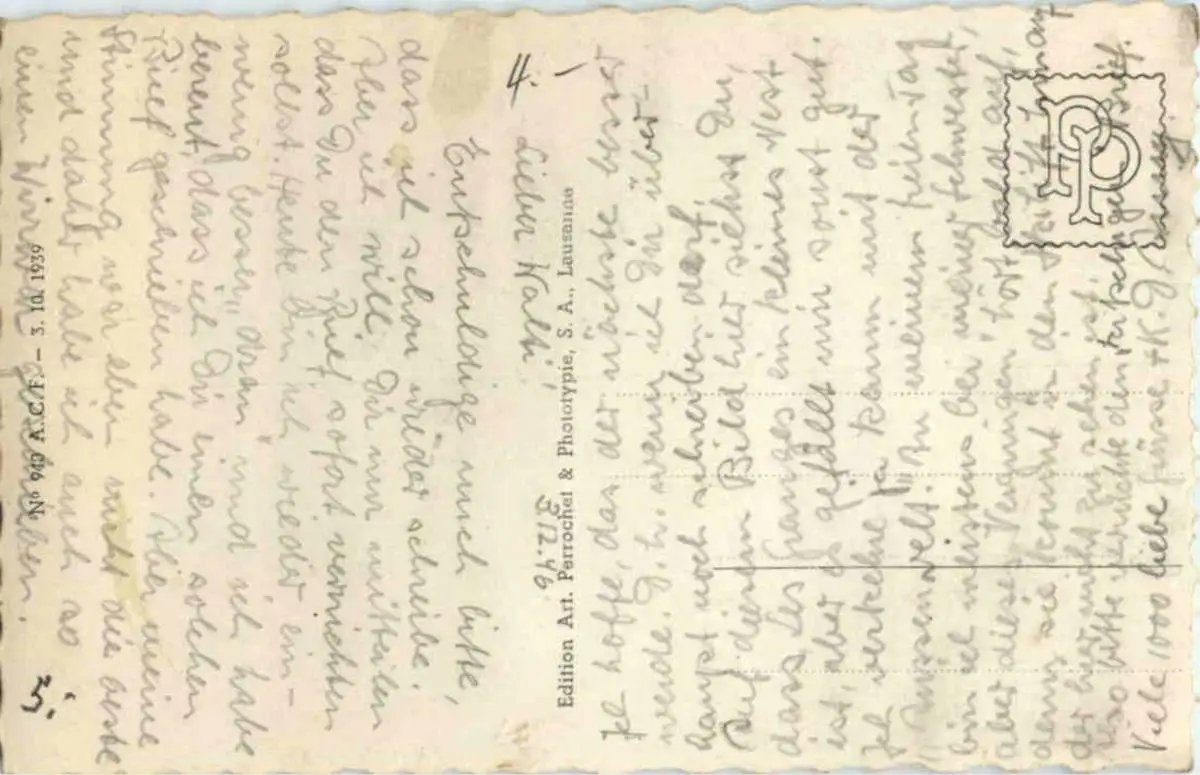 4. –
Lieber Walti,
Entschuldige mich bitte,
dass ich schon wieder schreibe.
Aber ich will Dir nur mitteilen
dass Du den Brief sofort vernichten
sollst. Heute bin ich wieder ein-
wenig besser „dran" und ich habe
bereut, dass ich Dir einen solchen
Brief geschrieben habe. Aber meine
Stimmung war eben nicht die beste
und daher habe ich auch so
einen Wirrwarr geschrieben.
3.
Nº 940 A.C.F. — 3. 10. 1939
Edition Art. Perrochet & Phototypie, S. A., Lausanne
312.46
Ich hoffe, dass der nächste besser
werde. D.h. wenn ich Dir über-
haupt noch schreiben darf.
Auf diesem Bild hier siehst Du,
dass Les Granges ein kleines Nest
ist, aber es gefällt mir sonst gut.
Ich verkehre ja kaum mit der
„Aussenwelt". An meinem freien Tag
bin ich meistens bei meiner Schwester,
aber dieses Vergnügen hört bald auf,
denn sie kommt in den
der hier nicht zu sehen ist.
Also bitte vernichte den Brief.
Viele 1000 liebe Grüsse + K.